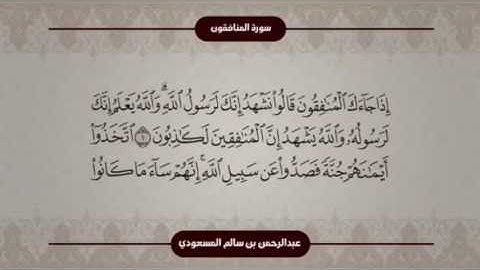 سورة المنافقون
إِذَا جَآءَكَ ٱلْمُنَٰفِقُونَ قَالُوا۟ نَشْهَدُ إِنَّكَ لَرَسُولُ ٱللَّهِ ۗ وَٱللَّهُ يَعْلَمُ إِنَّكَ
لَرَسُولُهُۥ وَٱللَّهُ يَشْهَدُ إِنَّ ٱلْمُنَٰفِقِينَ لَكَٰذِبُونَ ۝١ ٱتَّخَذُوٓا۟
أَيْمَٰنَهُمْ جُنَّةً فَصَدُّوا۟ عَن سَبِيلِ ٱللَّهِ ۚ إِنَّهُمْ سَآءَ مَا كَانُوا۟
عبدالرحمن بن سالم المسعودي